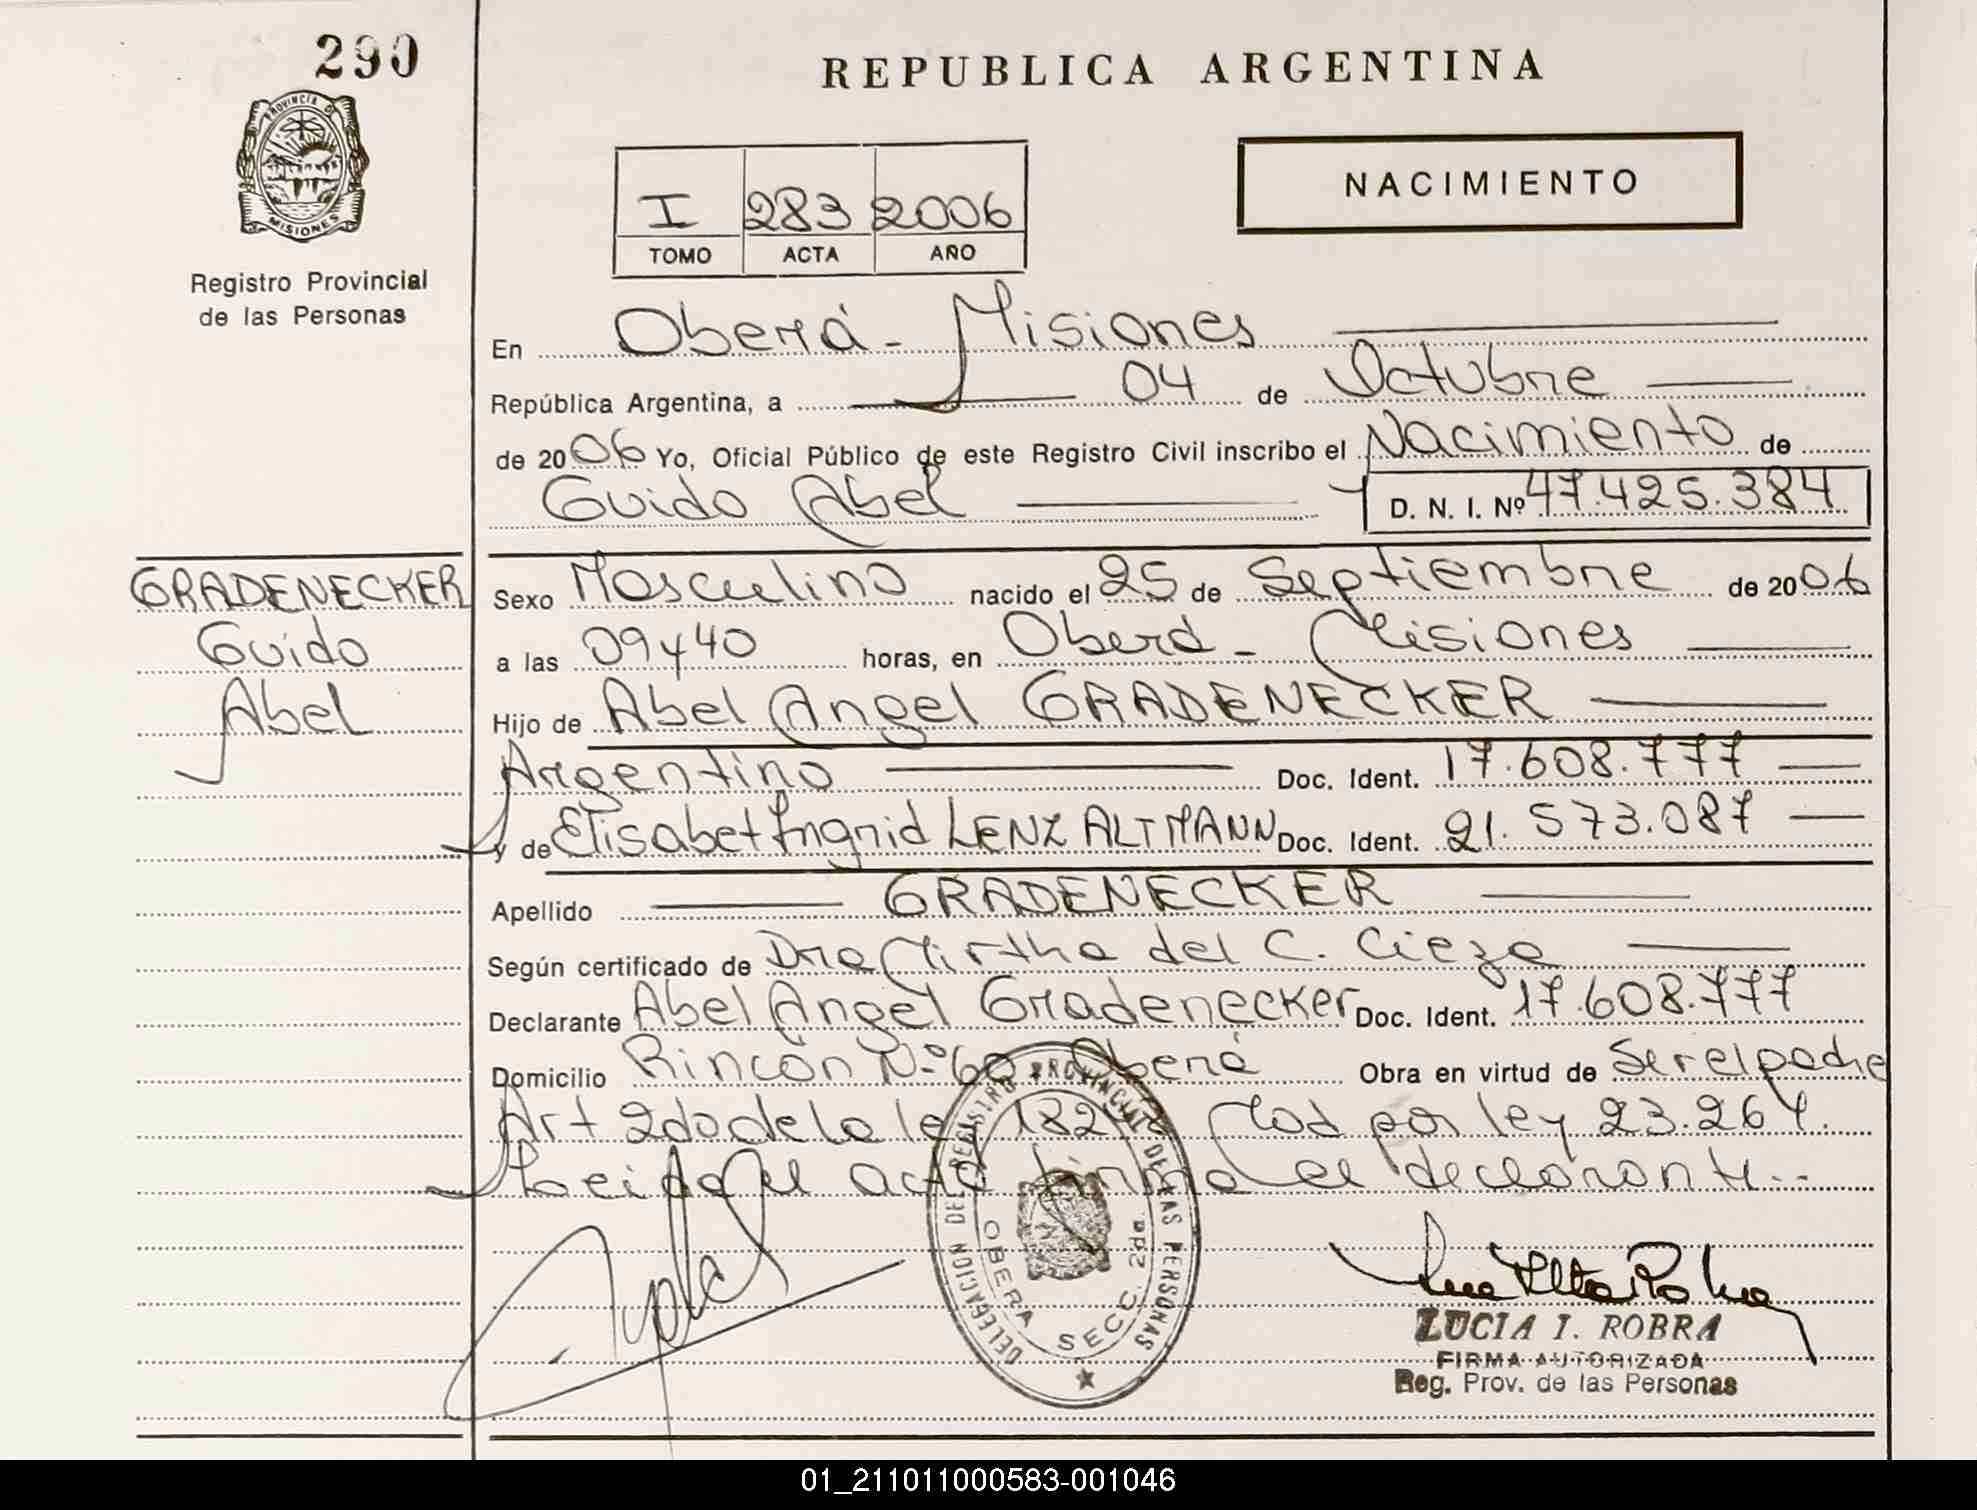 290
REPUBLICA ARGENTINA
PROVINCIA DE
MISIONES
Registro Provincial
de las Personas
NACIMIENTO
I 283 2006
TOMO ACTA AÑO
En Oberá - Misiones
República Argentina, a 04 de Octubre
de 2006 Yo, Oficial Público de este Registro Civil inscribo el Nacimiento de
Guido Abel D. N. I. Nº 47.425.384
GRADENECKER
Guido
Abel
Sexo Masculino nacido el 25 de Septiembre de 2006
a las 09 y 40 horas, en Oberá - Misiones
Hijo de Abel Angel GRADENECKER
Argentino Doc. Ident. 17.608.777
y de Elisabet Ingrid LENZ ALTMANN Doc. Ident. 21.573.087
Apellido GRADENECKER
Según certificado de Dra Mirtha del C. Cieza
Declarante Abel Angel Gradenecker Doc. Ident. 17.608.777
Domicilio Rincón Nº 60 Oberá Obra en virtud de Ser el padre
Art 2do de la ley Mod por ley 23.264.
Leida el acta firma el declarante..
DELEGACION DEL REGISTRO PROVINCIAL DE LAS PERSONAS
OBERA SECC. 2DA
LUCIA I. ROBRA
FIRMA AUTORIZADA
Reg. Prov. de las Personas
01_211011000583-001046